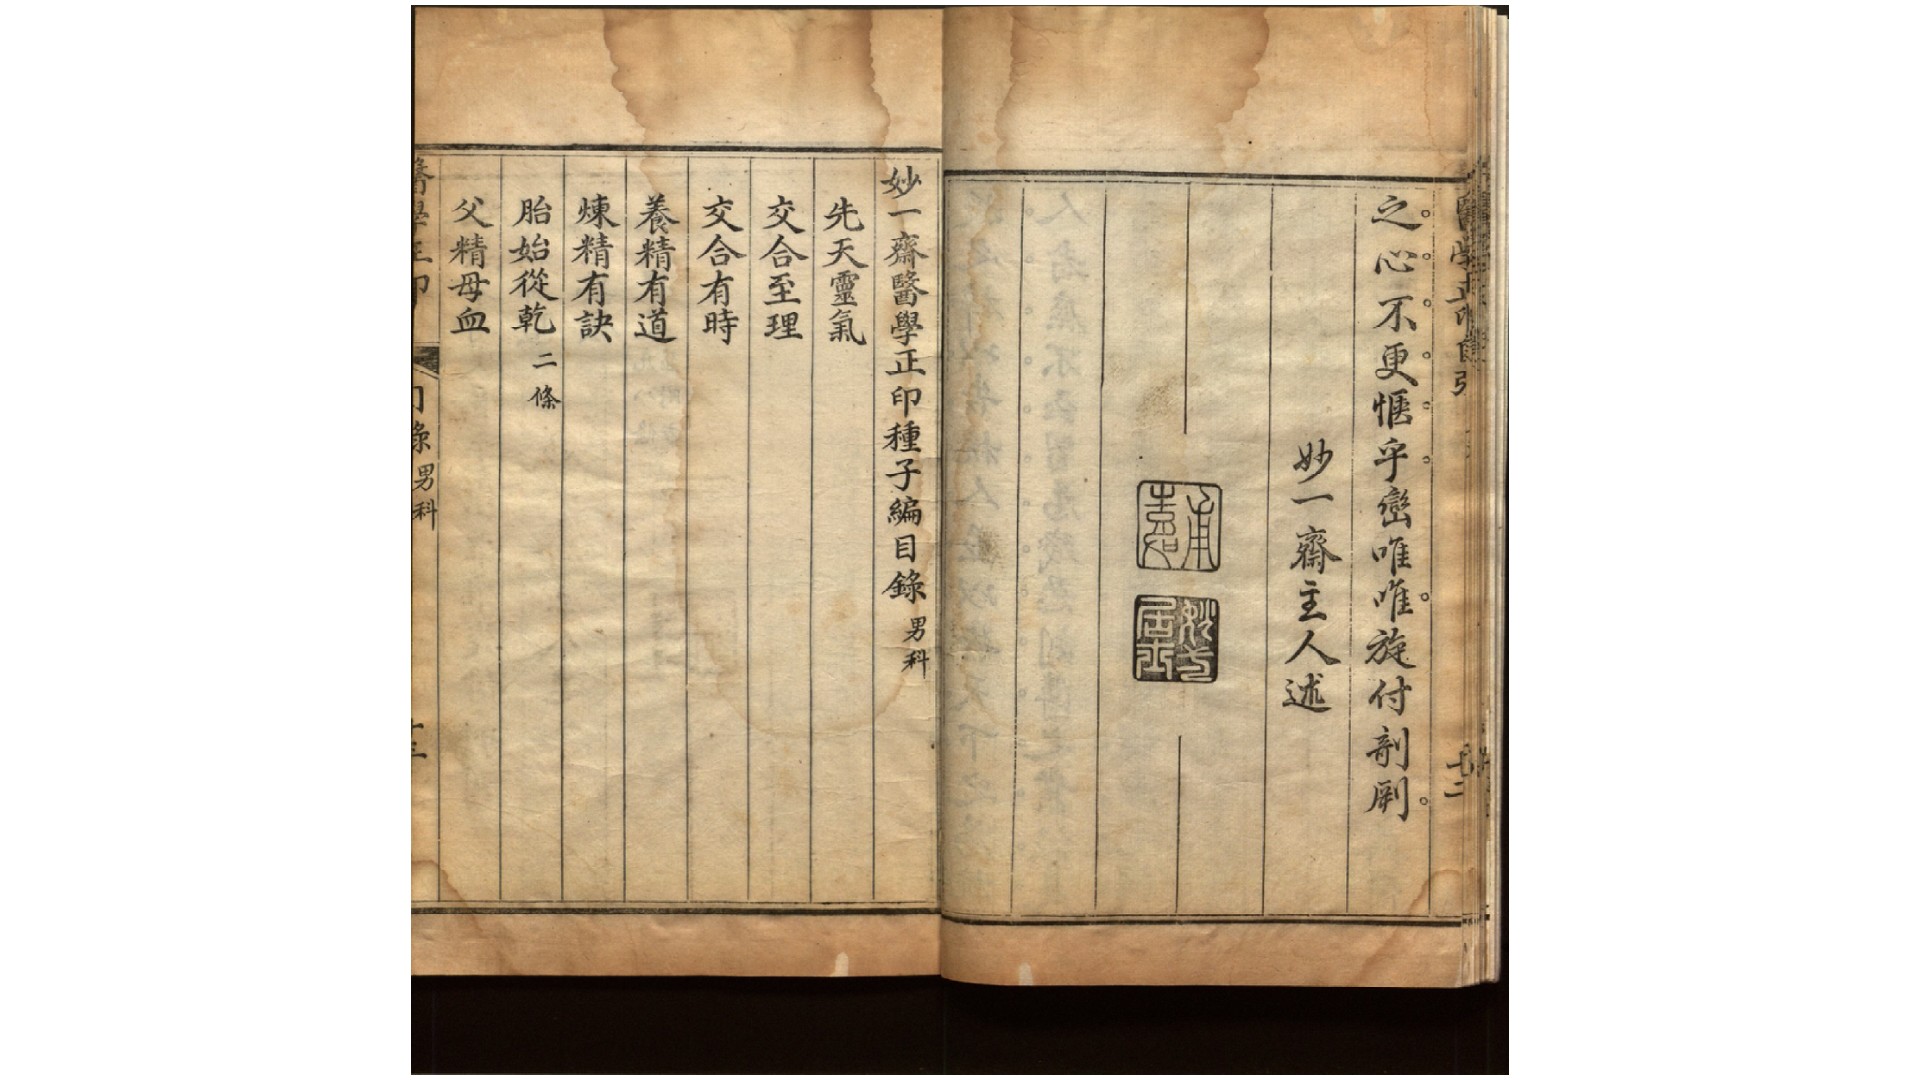 之心不更愜乎巒唯唯旋付剞劂
妙一齋主人述
妙一齋醫學正印種子編目錄 男科
先天靈氣
交合至理
交合有時
養精有道
煉精有訣
胎始從乾 二條
父精母血
醫學正印 目錄 男科 十三